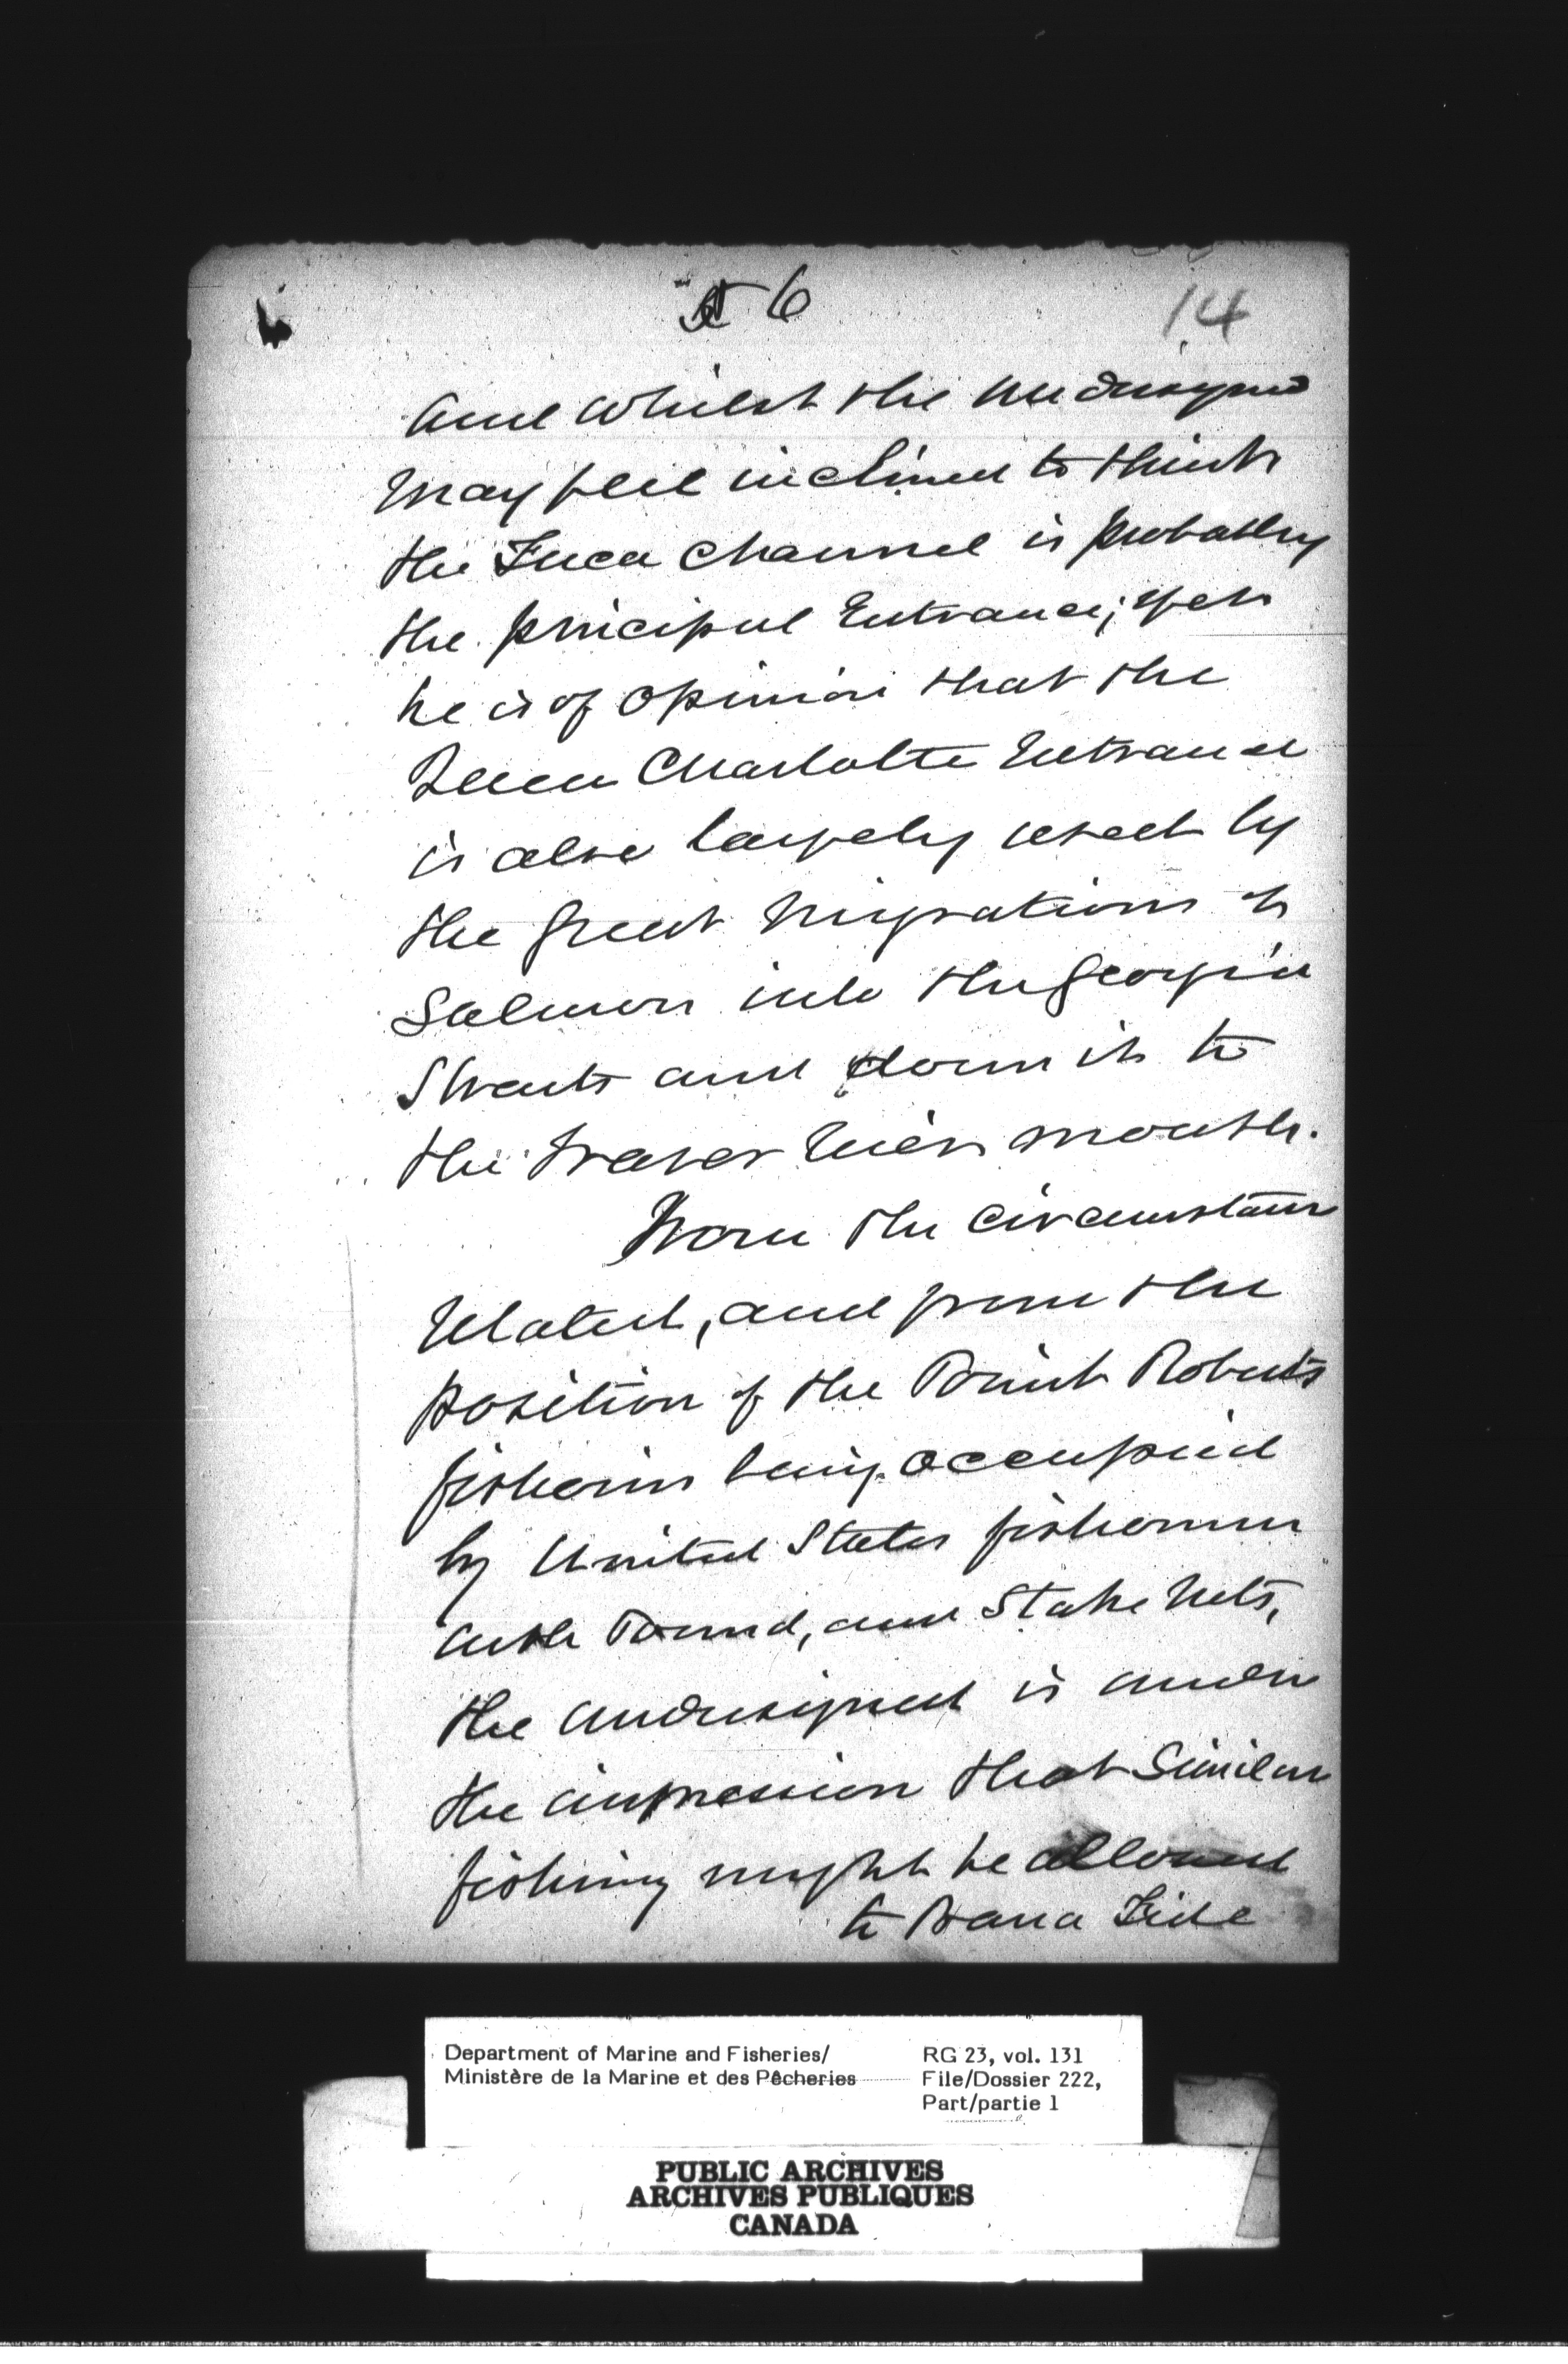 6
14
and whilst the undersigned
may feel inclined to think
the Fuca Channel is probably
the principal Entrance; yet
he is of opinion that the
Queen Charlotte Entrance
is also largely used by
the great migrations of
Salmon into the Georgia
Straits and down it to
the Fraser River mouth.
From the circumstances
related, and from the
position of the Point Roberts
fisheries being occupied
by United States fishermen
with Pound, and Stake Nets,
the undersigned is under
the impression that similar
fishing might be allowed
to Bona Fide
Department of Marine and Fisheries/
Ministère de la Marine et des Pêcheries
RG 23, vol. 131
File/Dossier 222,
Part/partie 1
PUBLIC ARCHIVES
ARCHIVES PUBLIQUES
CANADA